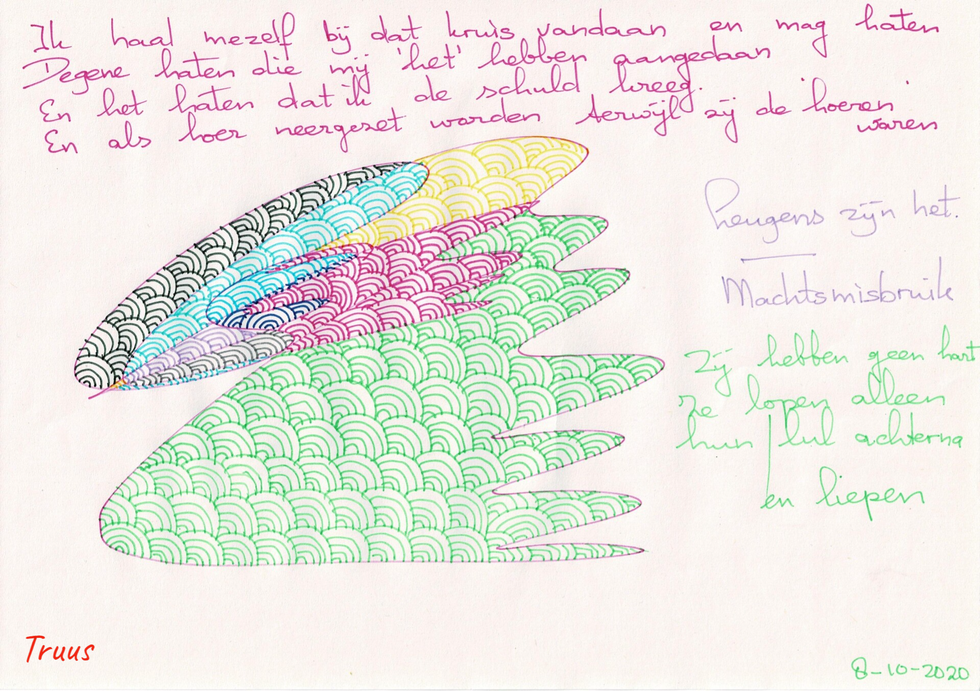 Ik haal mezelf bij dat kruis vandaan en mag haten
Degene haten die mij 'het' hebben aangedaan
En het haten dat ik de schuld kreeg.
En als hoer neergezet worden terwijl zij de 'hoeren' waren
Leugens zijn het.
Machtsmisbruik
Zij hebben geen hart
ze lopen alleen
hun lul achterna
en liepen
Truus
8-10-2020